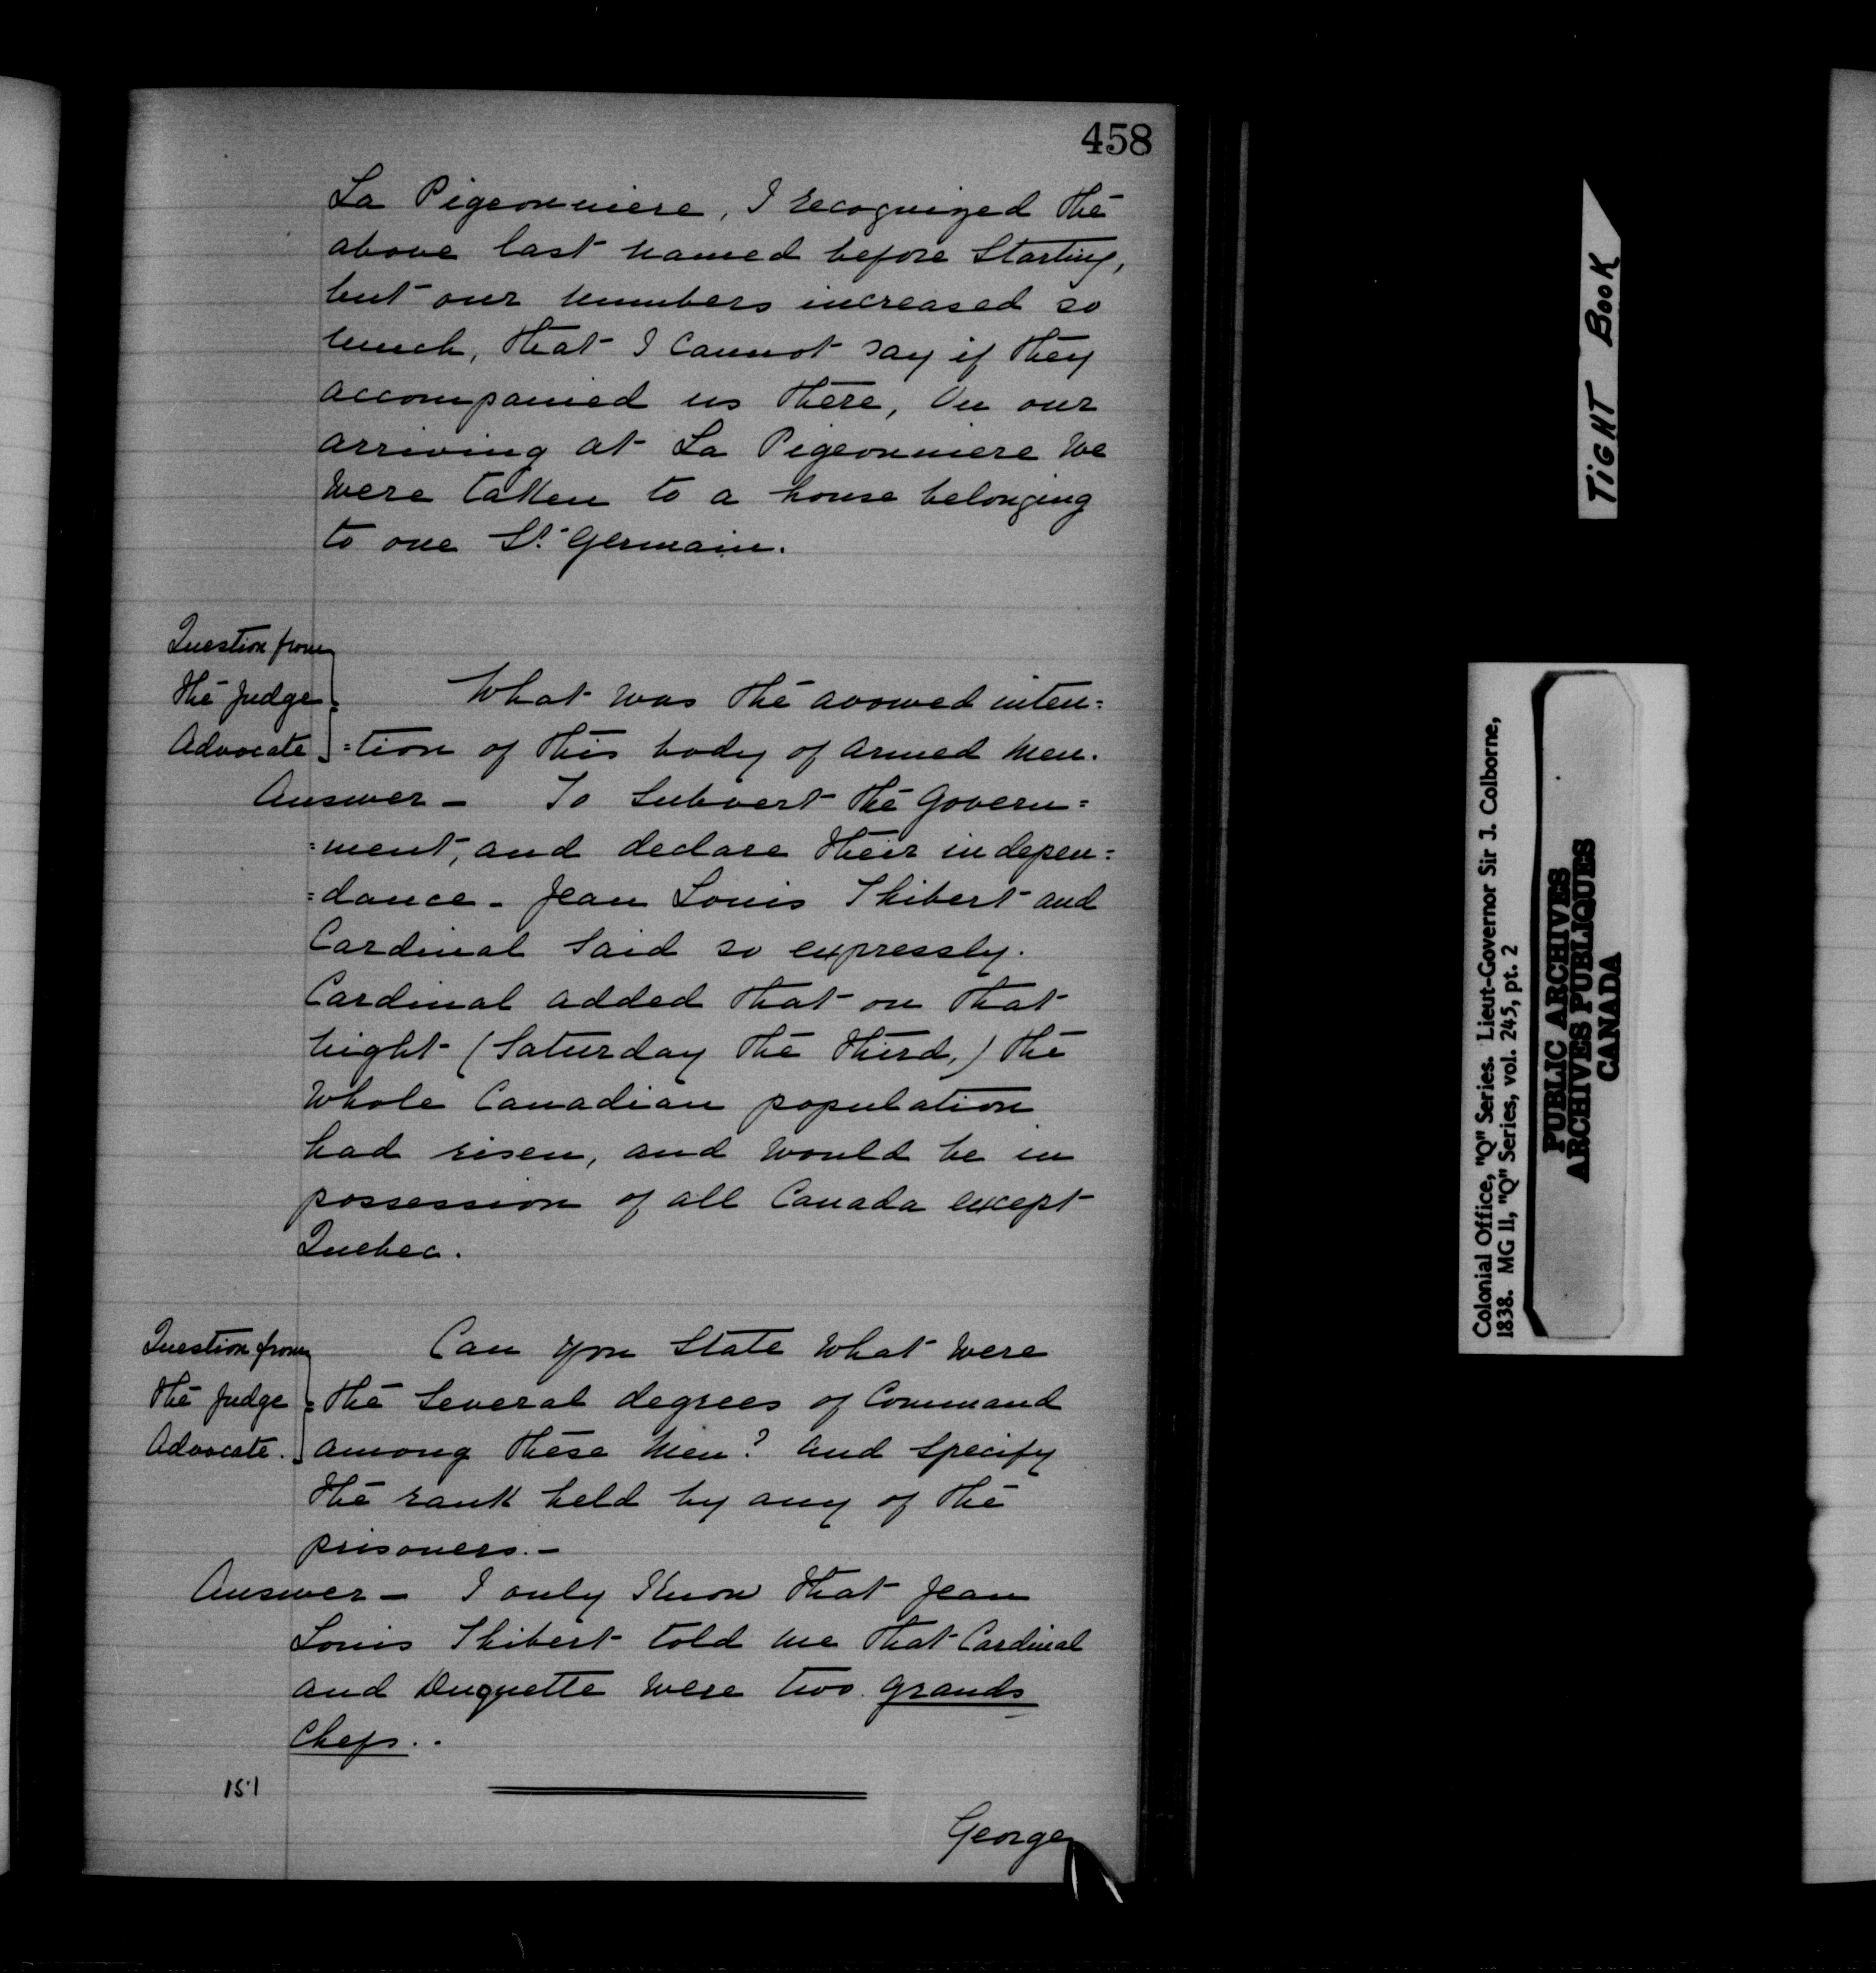 458
La Pigeonniere, I recognized the
above last named before starting,
but our numbers increased so
much, that I cannot say if they
accompanied us there, On our
arriving at La Pigeonniere we
were taken to a house belonging
to one St. Germain.
Question from
the Judge
Advocate
What was the avowed inten=
=tion of this body of armed men.
Answer - To subvert the Govern=
=ment, and declare their indepen=
=dance - Jean Louis Thibert and
Cardinal said so expressly.
Cardinal added that on that
night (Saturday the third,) the
whole Canadian population
had risen, and would be in
possession of all Canada except
Quebec.
Question from
the Judge
Advocate.
Can you state what were
the several degrees of Command
among these men? and specify
the rank held by any of the
prisoners.-
Answer - I only know that Jean
Louis Thibert told me that Cardinal
and Duquette were two grands
chefs..
151
George
TIGHT BOOK
Colonial Office, "Q" Series. Lieut-Governor Sir J. Colborne,
1838. MG 11, "Q" Series, vol. 245, pt. 2
PUBLIC ARCHIVES
ARCHIVES PUBLIQUES
CANADA